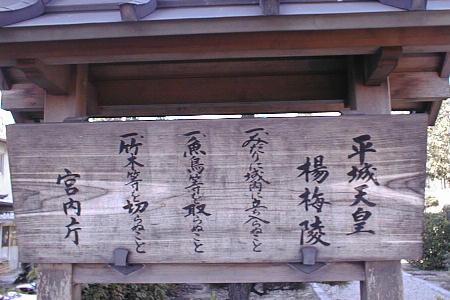 平城天皇
楊梅陵
一、みだりに域内に立ち入らぬこと
一、魚鳥等を取らぬこと
一、竹木等を切らぬこと
宮内庁